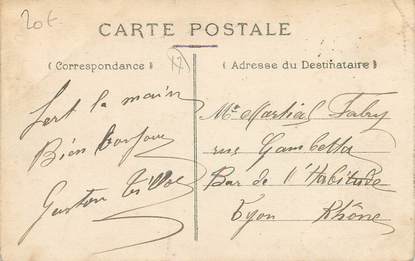 20€
CARTE POSTALE
(Correspondance)
(Adresse du Destinataire)
Sert la main
Bien bonjour
Gaston
Mr Martial Fabry
rue Gambetta
Bar de l'Habitude
Lyon Rhône